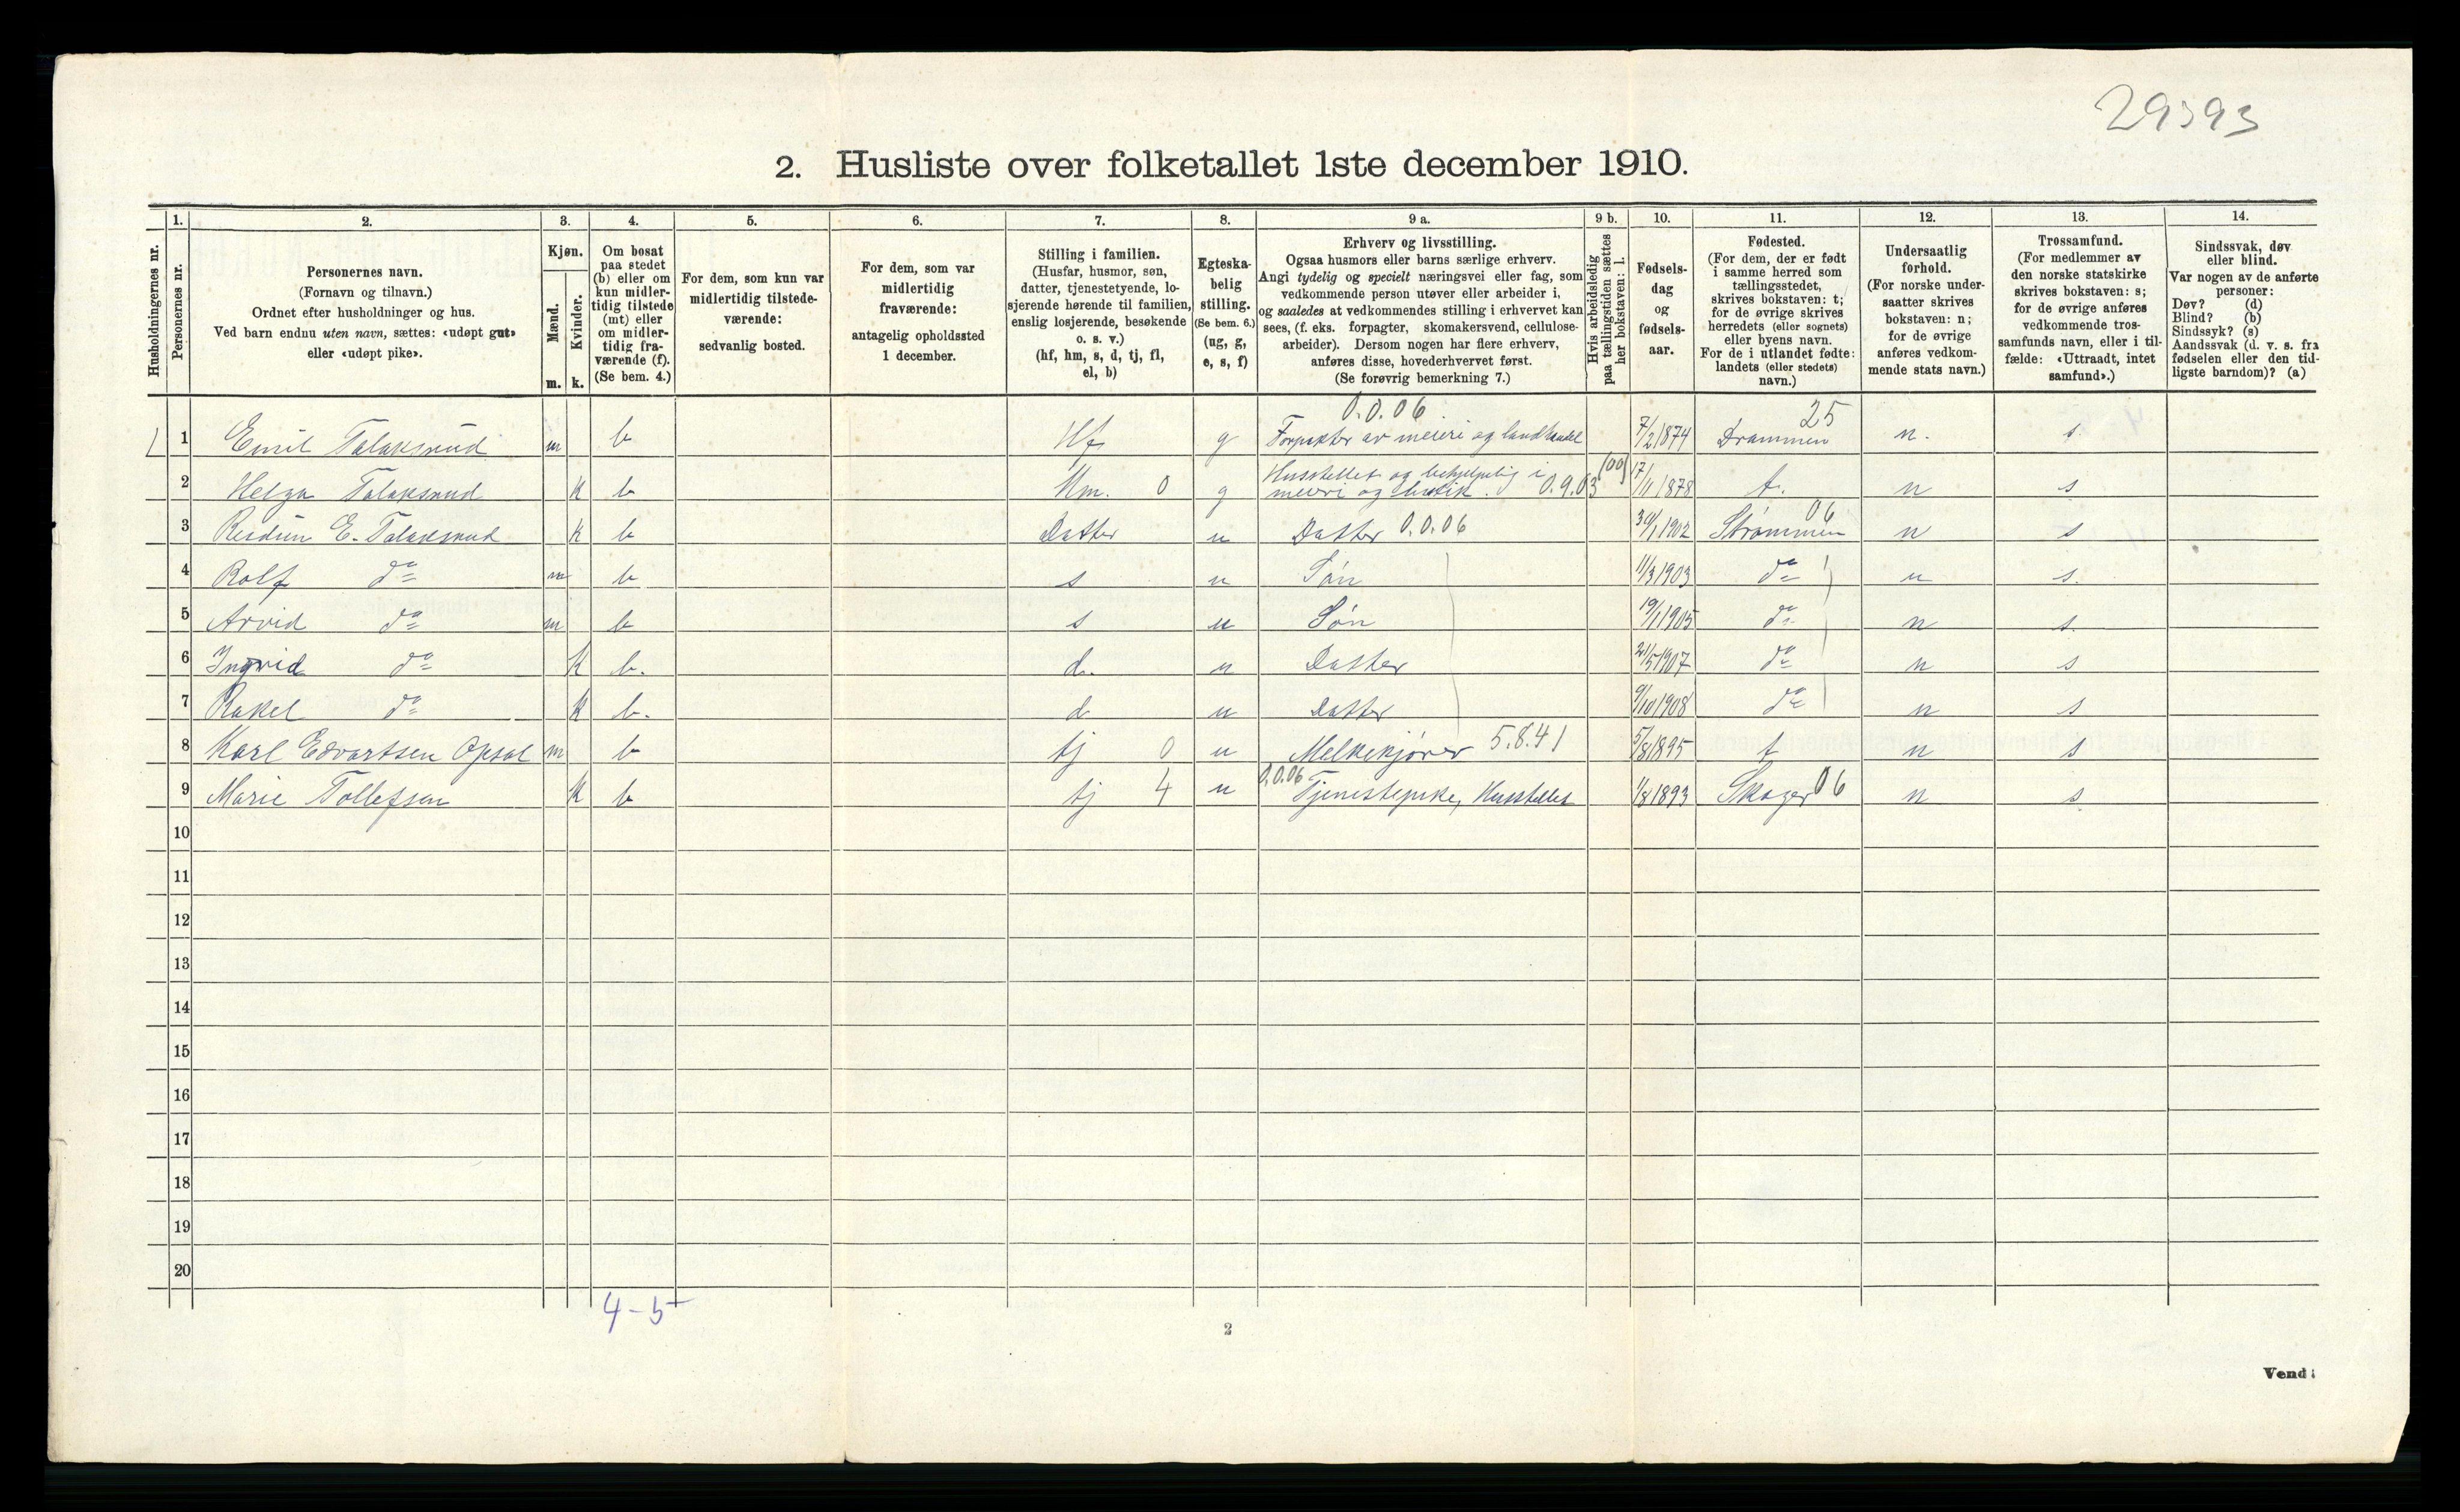 29393
2. Husliste over folketallet 1ste december 1910.
Husholdningernes nr.
1.
Personernes nr.
2.
Personernes navn.
(Fornavn og tilnavn.)
Ordnet efter husholdninger og hus.
Ved barn endnu uten navn, sættes: «udøpt gut»
eller «udøpt pike».
3.
Kjøn.
Mænd.
Kvinder.
m. k.
4.
Om bosat
paa stedet
(b) eller om
kun midler-
tidig tilstede
(mt) eller
om midler-
tidig fra-
værende (f).
(Se bem. 4.)
5.
For dem, som kun var
midlertidig tilstede-
værende:
sedvanlig bosted.
6.
For dem, som var
midlertidig
fraværende:
antagelig opholdssted
1 december.
7.
Stilling i familien.
(Husfar, husmor, søn,
datter, tjenestetyende, lo-
sjerende hørende til familien,
enslig losjerende, besøkende
o. s. v.)
(hf, hm, s, d, tj, fl,
el, b)
8.
Egteska-
belig
stilling.
(Se bem. 6.)
(ug, g,
e, s, f)
9 a.
Erhverv og livsstilling.
Ogsaa husmors eller barns særlige erhverv.
Angi tydelig og specielt næringsvei eller fag, som
vedkommende person utøver eller arbeider i,
og saaledes at vedkommendes stilling i erhvervet kan
sees, (f. eks. forpagter, skomakersvend, cellulose-
arbeider). Dersom nogen har flere erhverv,
anføres disse, hovederhvervet først.
(Se forøvrig bemerkning 7.)
9 b.
Hvis arbeidsledig
paa tællingstiden sættes
her bokstaven: l.
10.
Fødsels-
dag
og
fødsels-
aar.
11.
Fødested.
(For dem, der er født
i samme herred som
tællingsstedet,
skrives bokstaven: t;
for de øvrige skrives
herredets (eller sognets)
eller byens navn.
For de i utlandet fødte:
landets (eller stedets)
navn.)
12.
Undersaatlig
forhold.
(For norske under-
saatter skrives
bokstaven: n;
for de øvrige
anføres vedkom-
mende stats navn.)
13.
Trossamfund.
(For medlemmer av
den norske statskirke
skrives bokstaven: s;
for de øvrige anføres
vedkommende tros-
samfunds navn, eller i til-
fælde: «Uttraadt, intet
samfund».)
14.
Sindssvak, døv
eller blind.
Var nogen av de anførte
personer:
Døv? (d)
Blind? (b)
Sindssyk? (s)
Aandssvak (d. v. s. fra
fødselen eller den tid-
ligste barndom)? (a)
0.0.06 25
1 1 Emil Talaksrud m b Hf g Forpakter av meieri og landhandel 7/2 1874 Drammen n. s.
2 Helga Talaksrud k b Hm. 0 g Husstellet og behjelpelig i meieri og butik. 0.9.03 (00) 17/11 1878 t. n s
3 E. Talaksrud k b Datter u Datter 0.0.06 30/1 1902 Strømmen 06 n s
4 Rolf do m b s u Søn 11/3 1903 do n s.
5 Arvid do m b s u Søn 19/1 1905 do n s.
6 Ingrid do k b. d. u Datter 21/5 1907 do n s
7 Rakel do k b. d u Datter 9/10 1908 do n s
8 Karl Edvartsen Opsal m b tj 0 u Melkekjører 5.8.41 5/8 1895 t n s
9 Marie Tollefsen k b tj 4 u 0.0.06 Tjenestepike, Husstellet 1/8 1893 Skoger 06 n s
10
11
12
13
14
15
16
17
18
19
20
4-5
2
Vend!